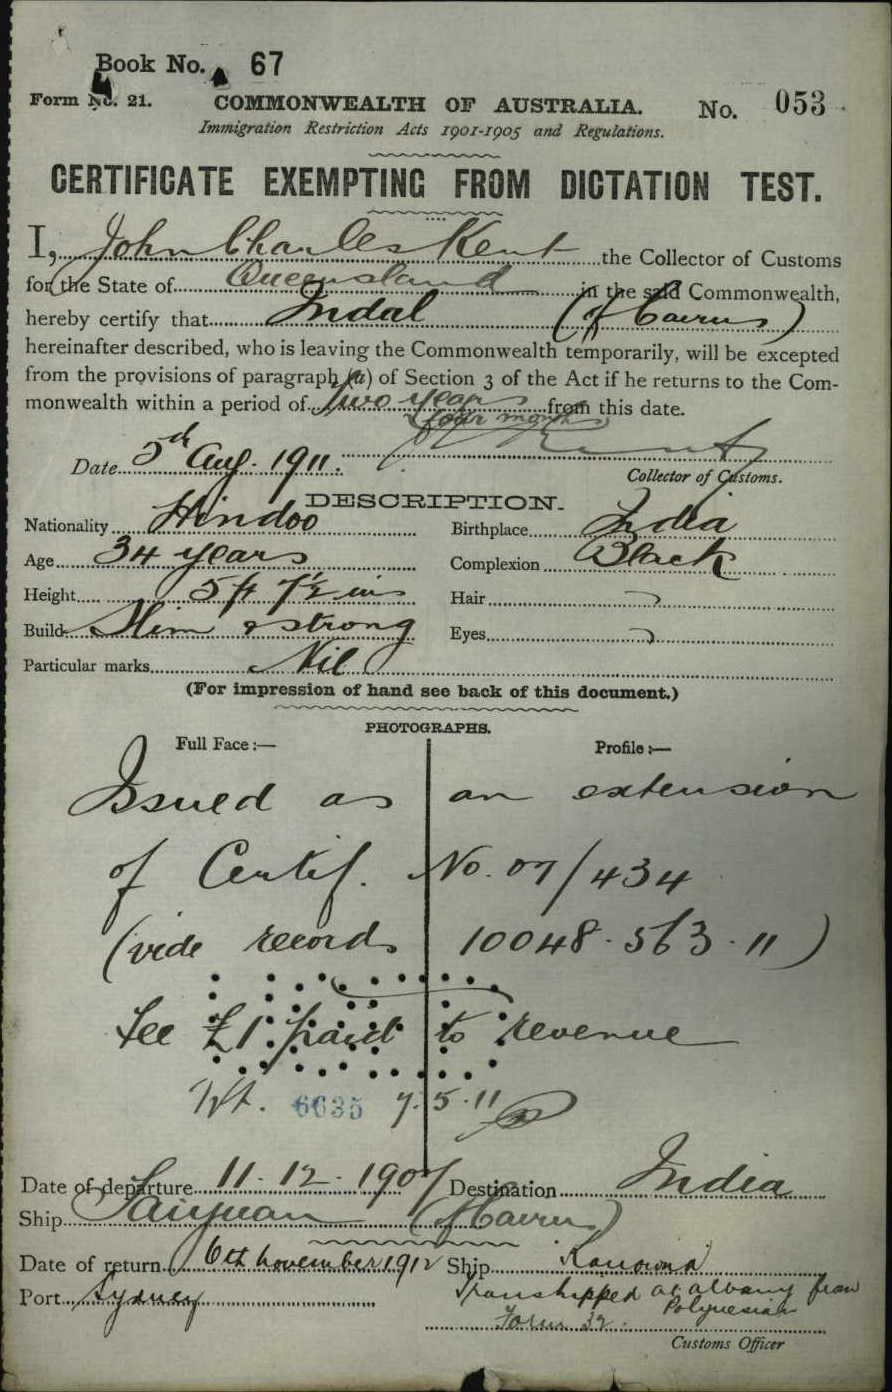 Book No. 67
Form No. 21.
COMMONWEALTH OF AUSTRALIA.
No. 053
Immigration Restriction Acts 1901-1905 and Regulations.
CERTIFICATE EXEMPTING FROM DICTATION TEST.
I, John Charles Kent the Collector of Customs
for the State of Queensland in the said Commonwealth,
hereby certify that Indal (of Cairns)
hereinafter described, who is leaving the Commonwealth temporarily, will be excepted
from the provisions of paragraph (a) of Section 3 of the Act if he returns to the Com-
monwealth within a period of two years from this date.
(four months)
Date 5th Aug. 1911. Kent
Collector of Customs.
DESCRIPTION.
Nationality Hindoo Birthplace India
Age 34 years Complexion Black
Height 5 ft 7½ ins Hair
Build Slim & strong Eyes
Particular marks Nil
(For impression of hand see back of this document.)
PHOTOGRAPHS.
Full Face :— Profile :—
Issued as an extension
of Certif. No. 07/434
(vide record 10048.563.11)
Fee £1 paid to revenue
6635 7.5.11
Date of departure 11.12.1907 Destination India
Ship Taiyuan (of Cairns)
Date of return 6th November 1912 Ship Kanowna
Port Sydney Transhipped at albany from
Polynesian
Form 32.
Customs Officer